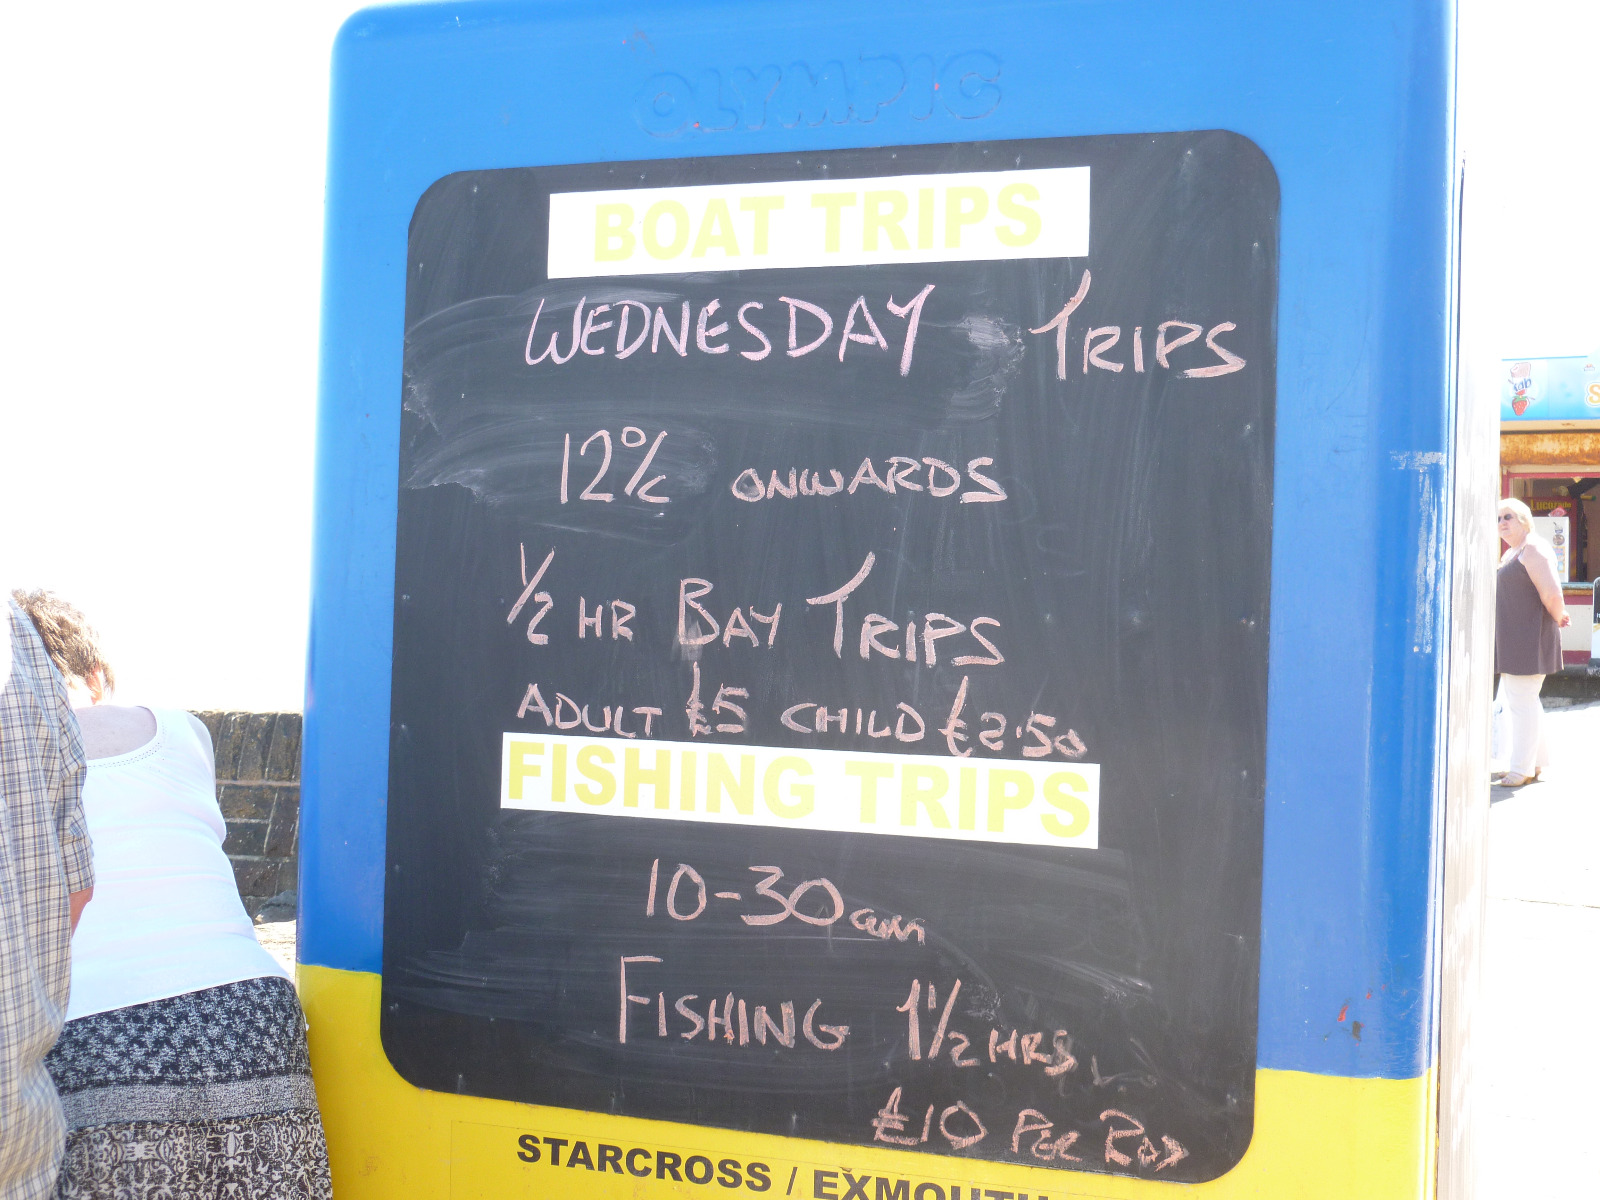 OLYMPIC
BOAT TRIPS
WEDNESDAY TRIPS
12 o/c ONWARDS
1/2 HR BAY TRIPS
ADULT £5 CHILD £2.50
FISHING TRIPS
10-30am
FISHING 1 1/2 HRS
£10 PER ROD
STARCROSS / EXMOUTH
Lucozade